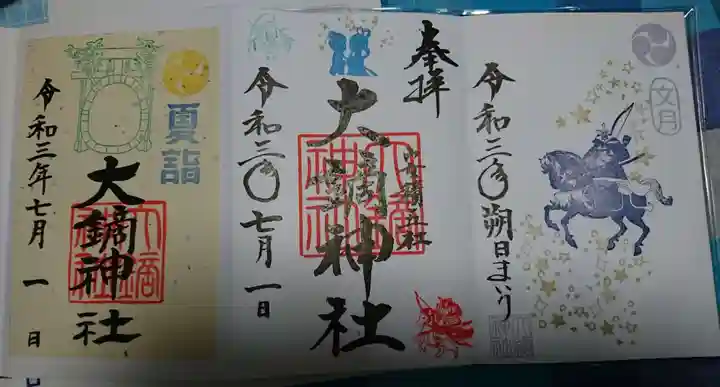 文月
令和三年朔日まいり
奉拝
大鏑神社
令和三年七月一日
夏詣
大鏑神社
令和三年七月一日